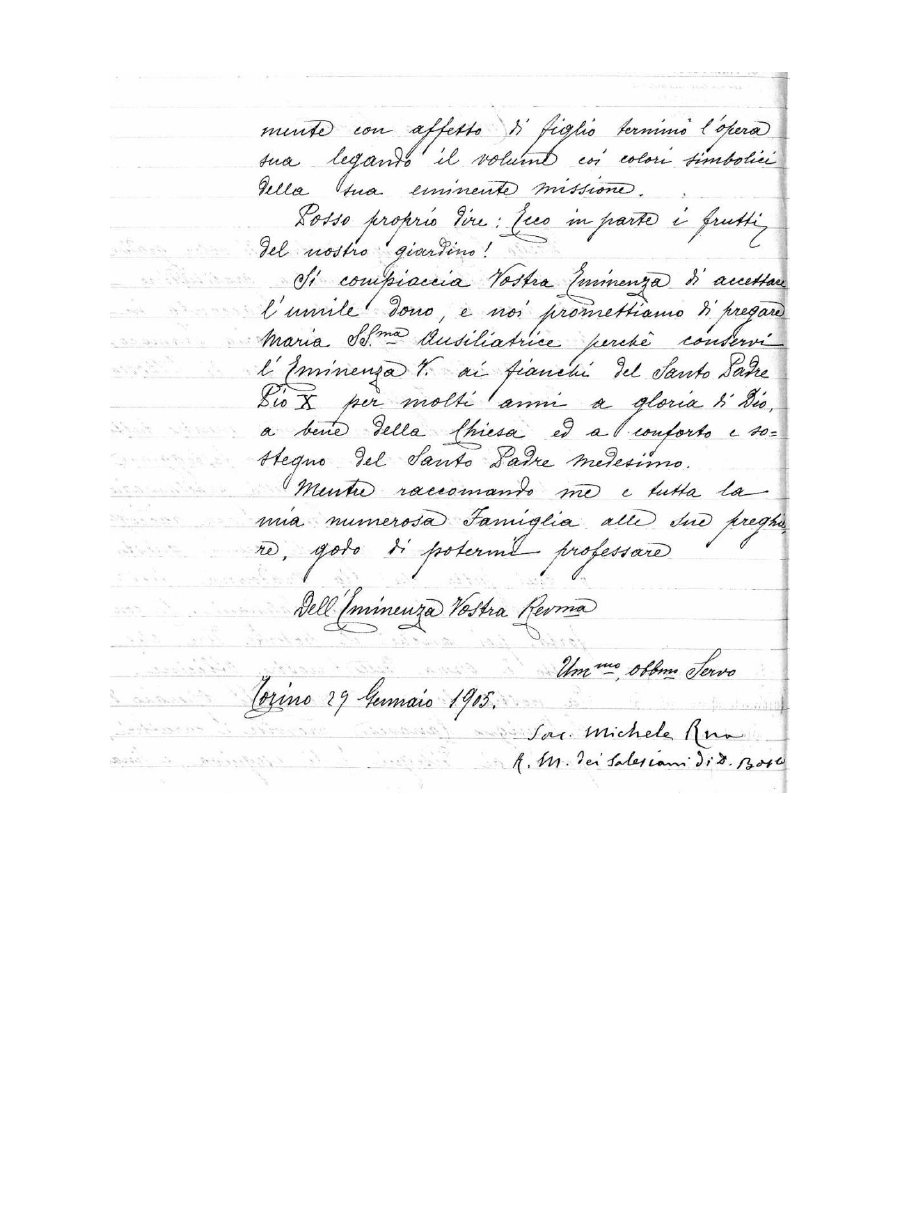 mente con affetto di figlio terminò l'opera
sua legando il volume coi colori simbolici
della sua eminente missione.
Posso proprio dire: Ecco in parte i frutti
del nostro giardino!
Si compiaccia Vostra Eminenza di accettare
l'umile dono, e noi promettiamo di pregare
Maria SS.ma Ausiliatrice perchè conservi
l'Eminenza V. ai fianchi del Santo Padre
Pio X per molti anni a gloria di Dio,
a bene della Chiesa ed a conforto e so=
stegno del Santo Padre medesimo.
Mentre raccomando me e tutta la
mia numerosa Famiglia alle sue preghie
re, godo di potermi professare
Dell'Eminenza Vostra Revma
Um.mo, obbmo Servo
Torino 29 Gennaio 1905.
Sac. Michele Rua
R. M. dei Salesiani di D. Bosco